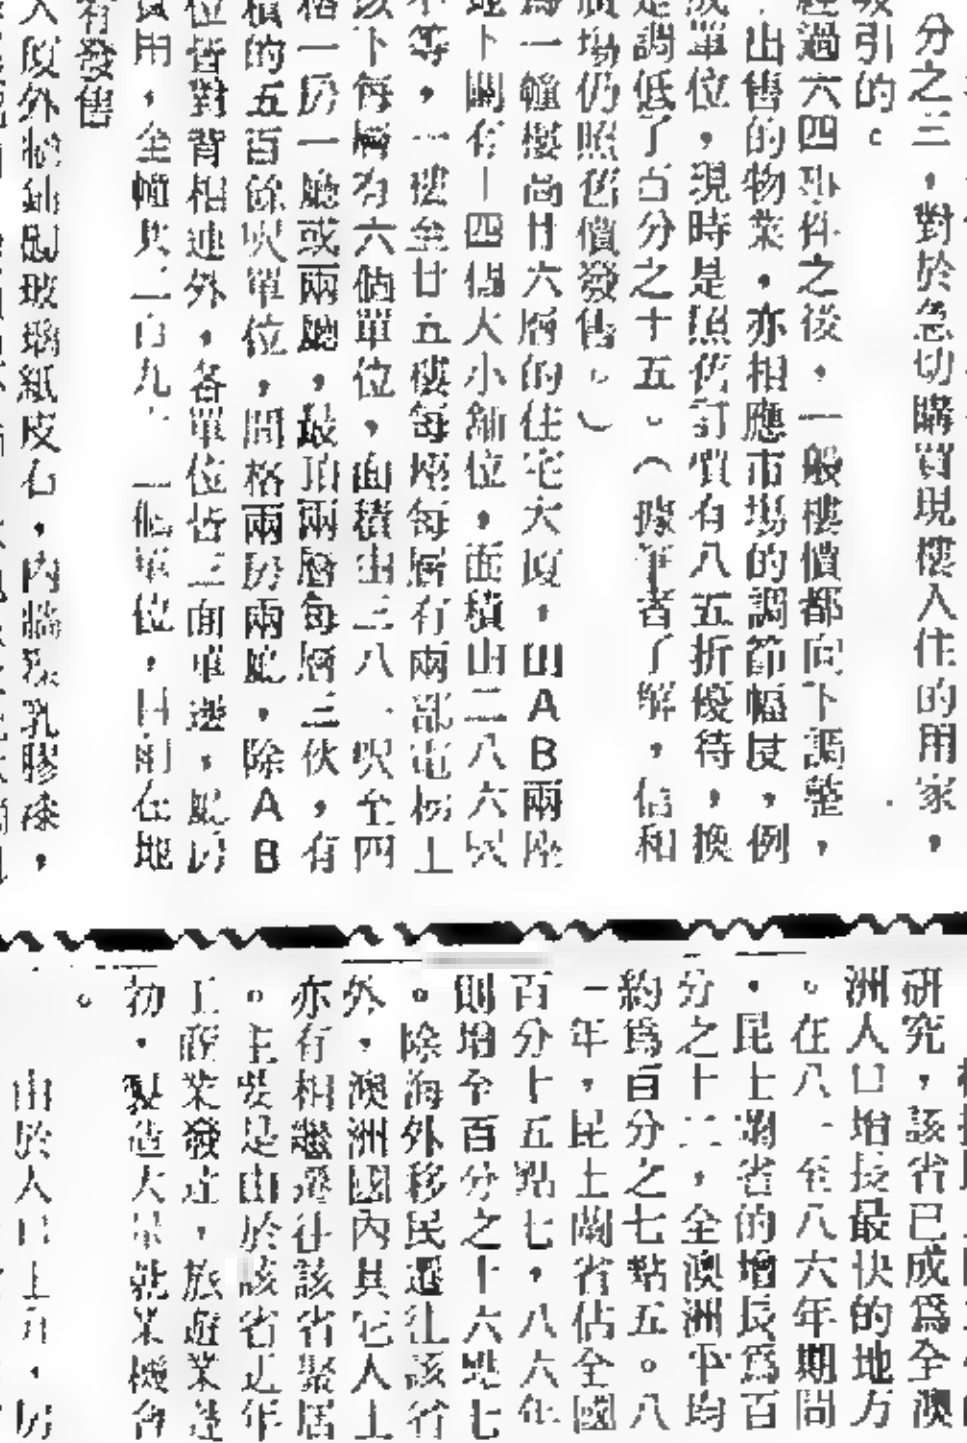 分之三，對於急切購買現樓入住的用家，
吸引的。
經過六四事件之後，一般樓價都向下調整，
出售的物業，亦相應市場的調節幅度，例
單位，現時是照舊訂價有八五折優待，換
是調低了百分之十五。（據筆者了解，信和
廣場仍照舊價發售。）
為一幢樓高廿六層的住宅大廈，由AB兩座
地下關有十四個大小舖位，面積由二八六呎
不等，一樓至廿五樓每座每層有兩部電梯上
該下每層有六個單位，面積由三八一呎至四
格一房一廳或兩廳，最頂兩層每層三伙，有
積的五百餘呎單位，間格兩房兩廳，除AB
位皆對背相連外，各單位皆三面單邊，廳房
實用，全幢共二百九十二個單位，目前在地
有發售
大廈外牆鋪砌玻璃紙皮石，內牆掃乳膠漆，
研究，該省已成為全澳
洲人口增長最快的地方
。在八一至八六年期間
，昆士蘭省的增長為百
分之十二，全澳洲平均
約為百分之七點五。八
一年，昆士蘭省佔全國
百分十五點七，八六年
則增至百分之十六點七
。除海外移民遷往該省
外，澳洲國內其它人士
亦有相繼遷往該省聚居
。主要是由於該省近年
工商業發達，旅遊業蓬
勃，製造大量就業機會
。
由於人口上升，房